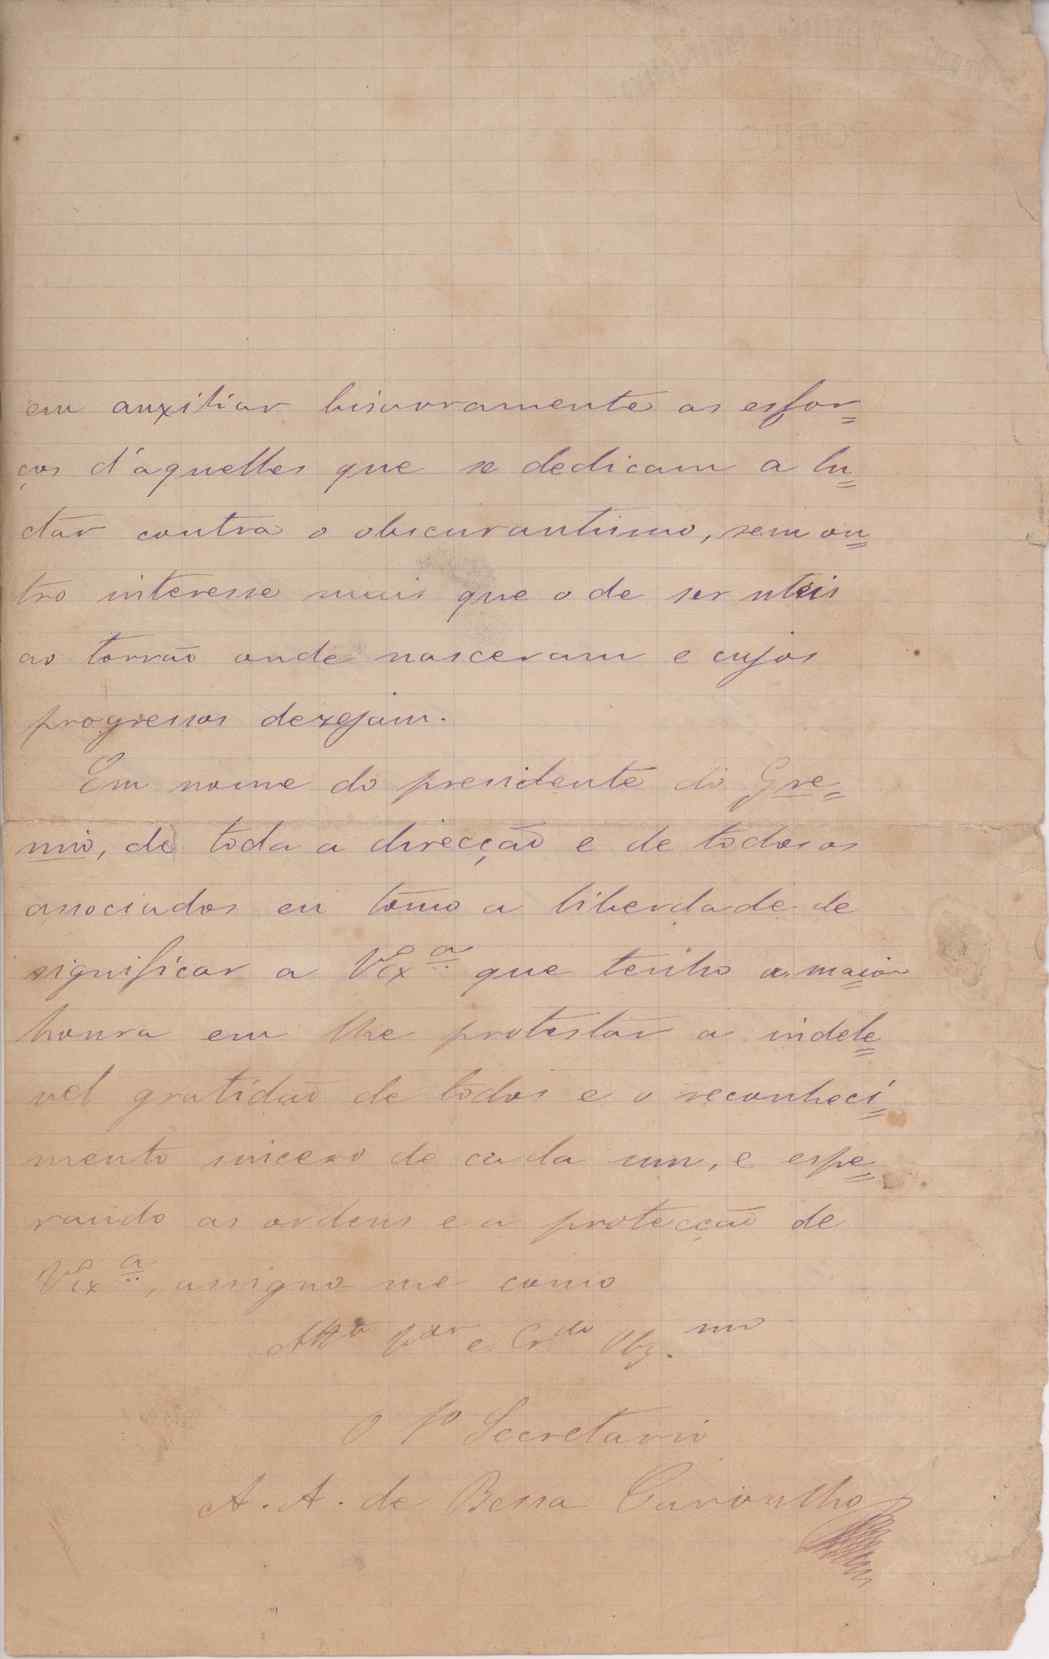 em auxiliar bisarramente os esfor=
ços d'aquelles que se dedicam a lu=
ctar contra o obscurantismo, sem ou=
tro interesse mais que o de ser uteis
ao torrão onde nasceram e cujos
progressos dezejam.
Em nome do presidente do Gre=
mio, de toda a direcção e de todos os
associados eu tomo a liberdade de
significar a VEx.ª que tenho a maior
honra em lhe protestar a indele=
vel gratidão de todos e o reconheci=
mento sincero de cada um, e espe=
rando as ordens e a protecção de
VEx.ª, assigno me como
Att.º V.or e Cr.do Obg.mo
O 1º Secretario
A. A. de Bessa Carvalho